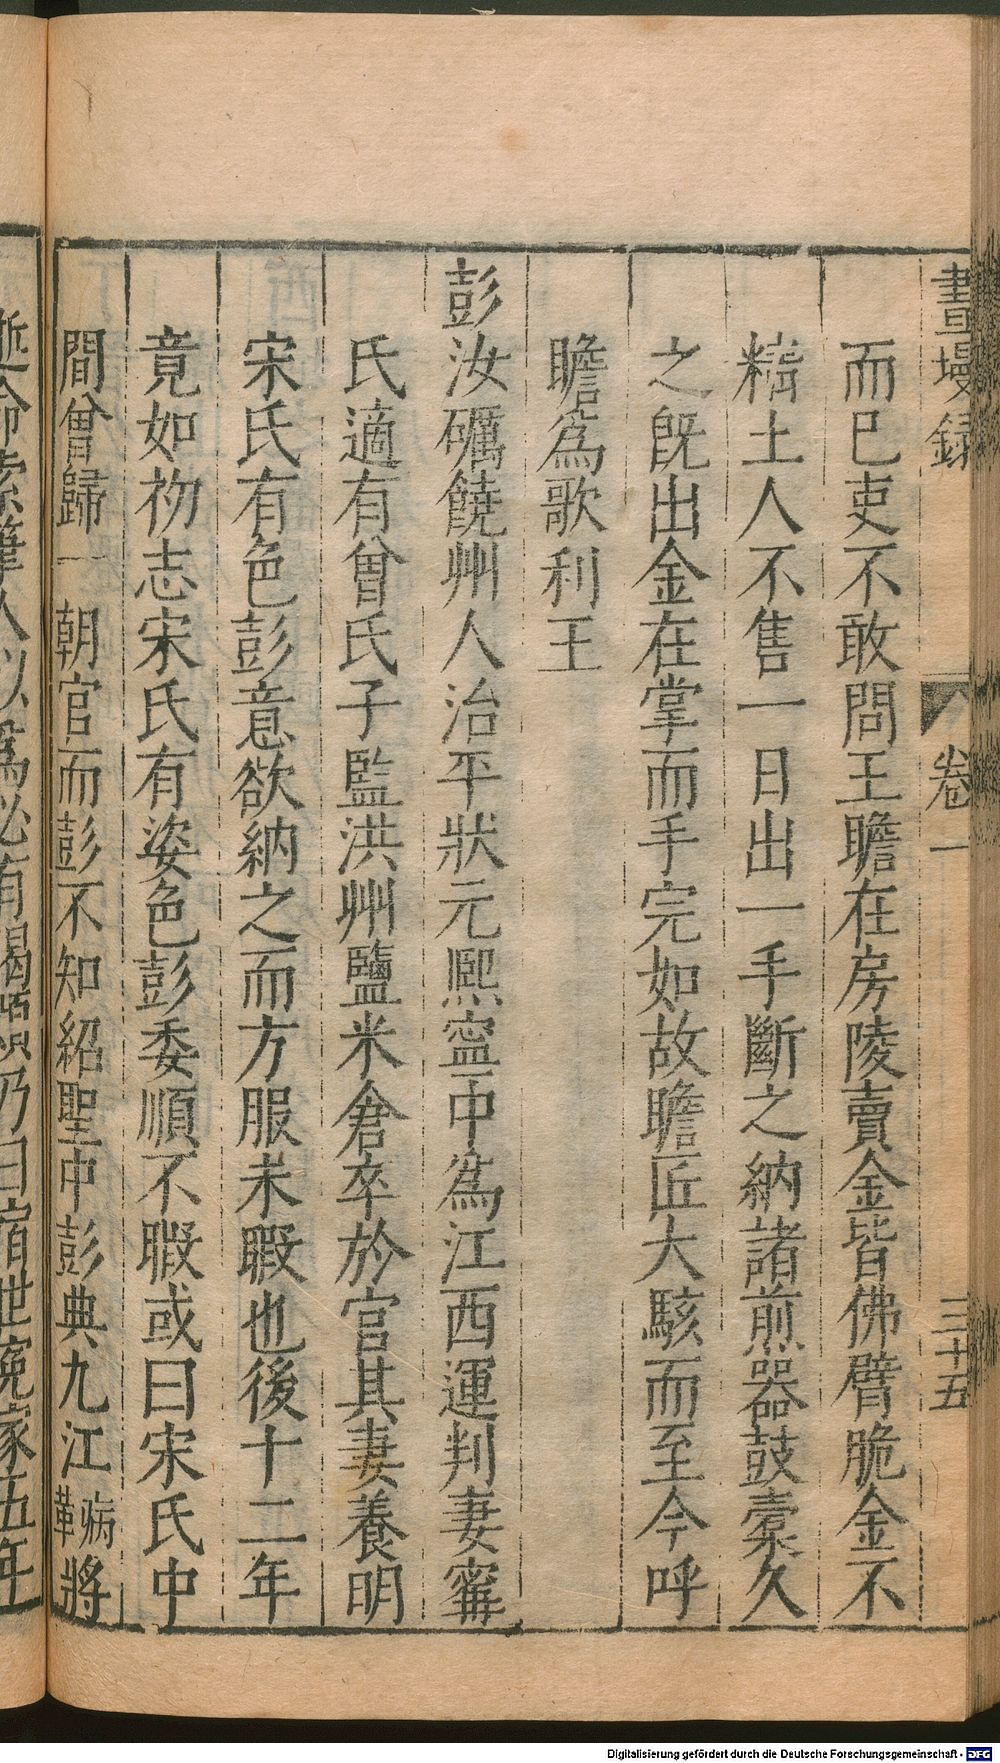 畫墁録 卷一 三十五
而已吏不敢問王瞻在房陵賣金皆佛臂脆金不
精土人不售一日出一手斷之納諸煎器鼓橐久
之既出金在掌而手完如故瞻匠大駭而至今呼
瞻爲歌利王
彭汝礪饒州人治平狀元熙寧中爲江西運判妻甯
氏適有曾氏子監洪州鹽米倉卒於官其妻養明
宋氏有色彭意欲納之而方服未暇也後十二年
竟如初志宋氏有姿色彭委順不暇或曰宋氏中
間曾歸一朝官而彭不知紹聖中彭典九江病革將
逝命索筆人以爲必有偈頌乃曰宿世冤家五年
Digitalisierung gefördert durch die Deutsche Forschungsgemeinschaft - DFG